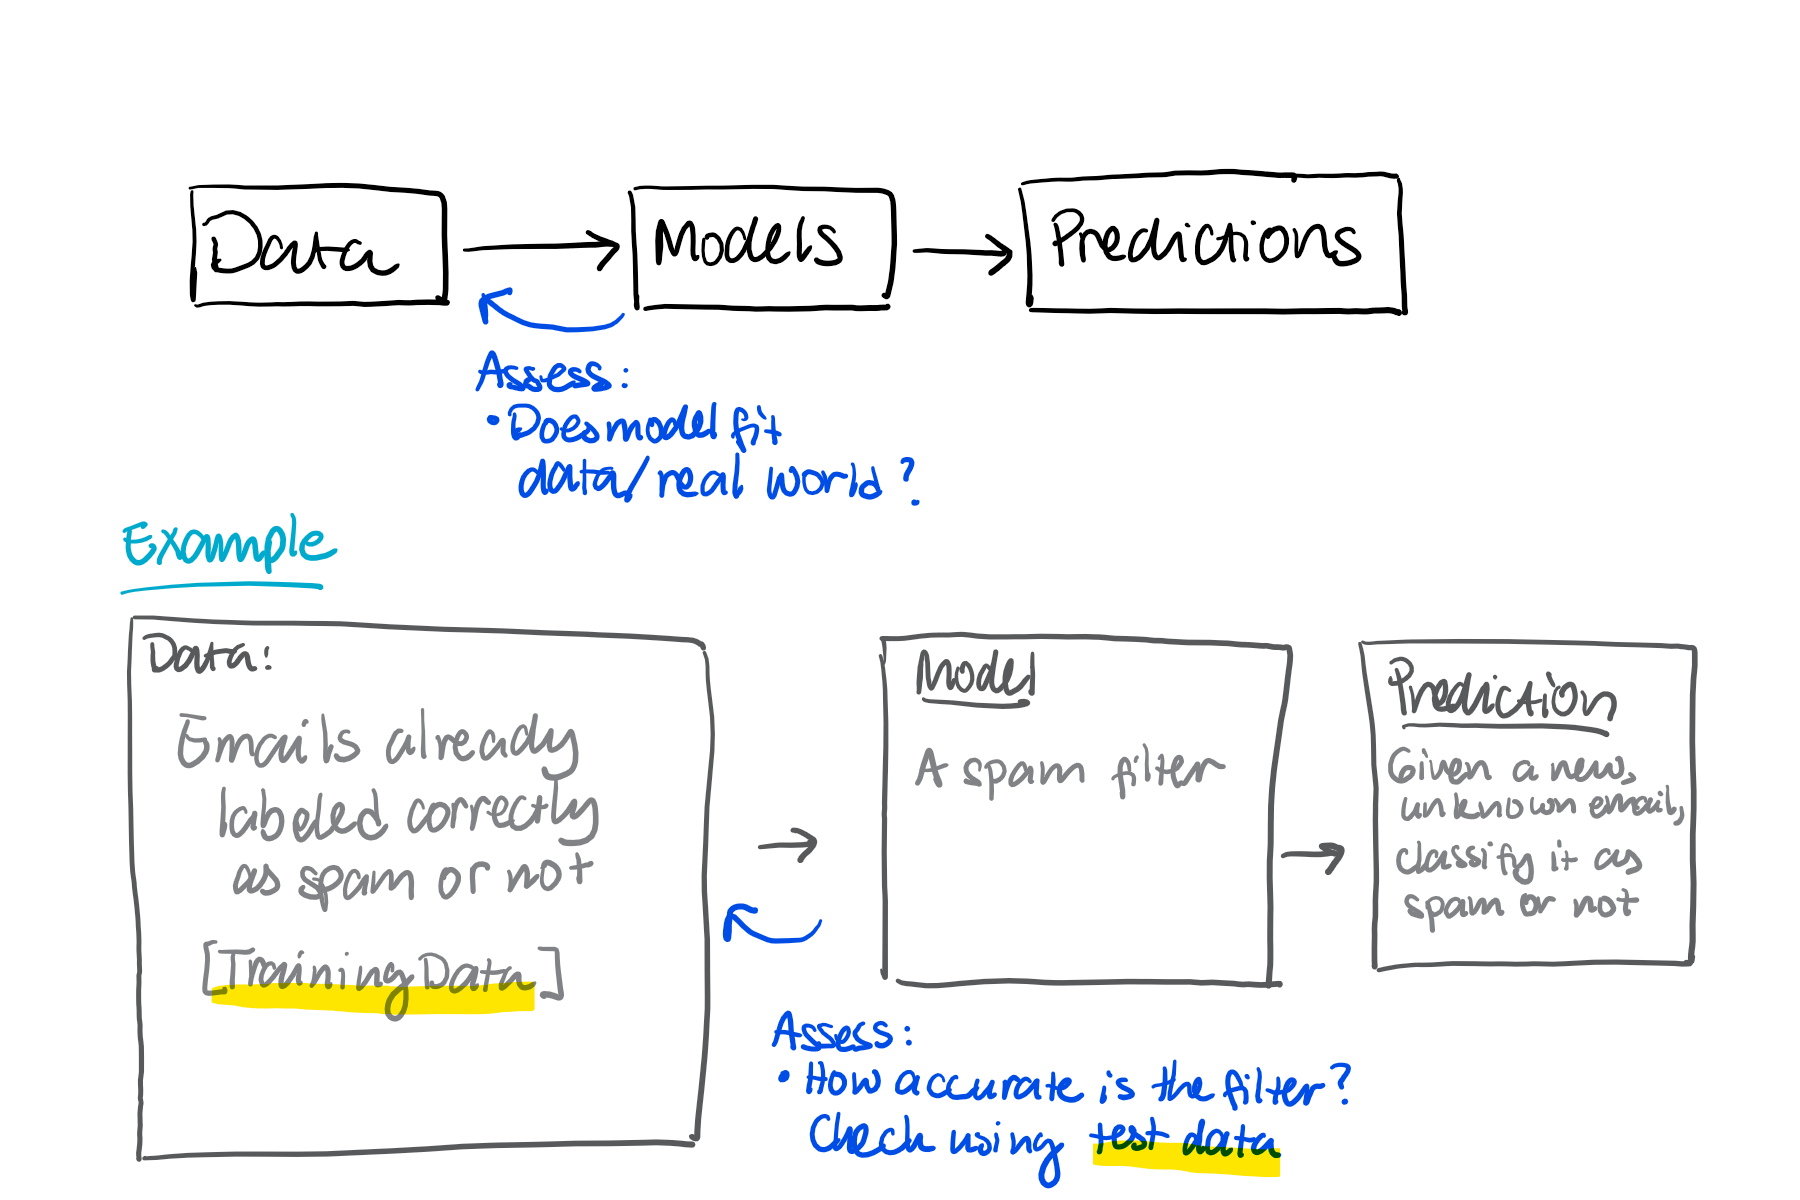 Data
Models
Predictions
Assess:
• Does model fit
data/real world?
Example
Data:
Emails already
labeled correctly
as spam or not
[Training Data]
Model
A spam filter
Prediction
Given a new,
unknown email,
classify it as
spam or not
Assess:
• How accurate is the filter?
Check using test data